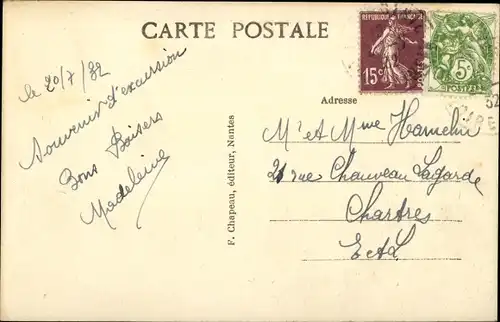 CARTE POSTALE
RÉPUBLIQUE FRANÇAISE
15c
5c
POSTES
le 20/7/32
Souvenir d'excursion
Bons Baisers
Madeleine
F. Chapeau, éditeur, Nantes
Adresse
Mr et Mme Hamelin
21 rue Chauveau Lagarde
Chartres
E et L